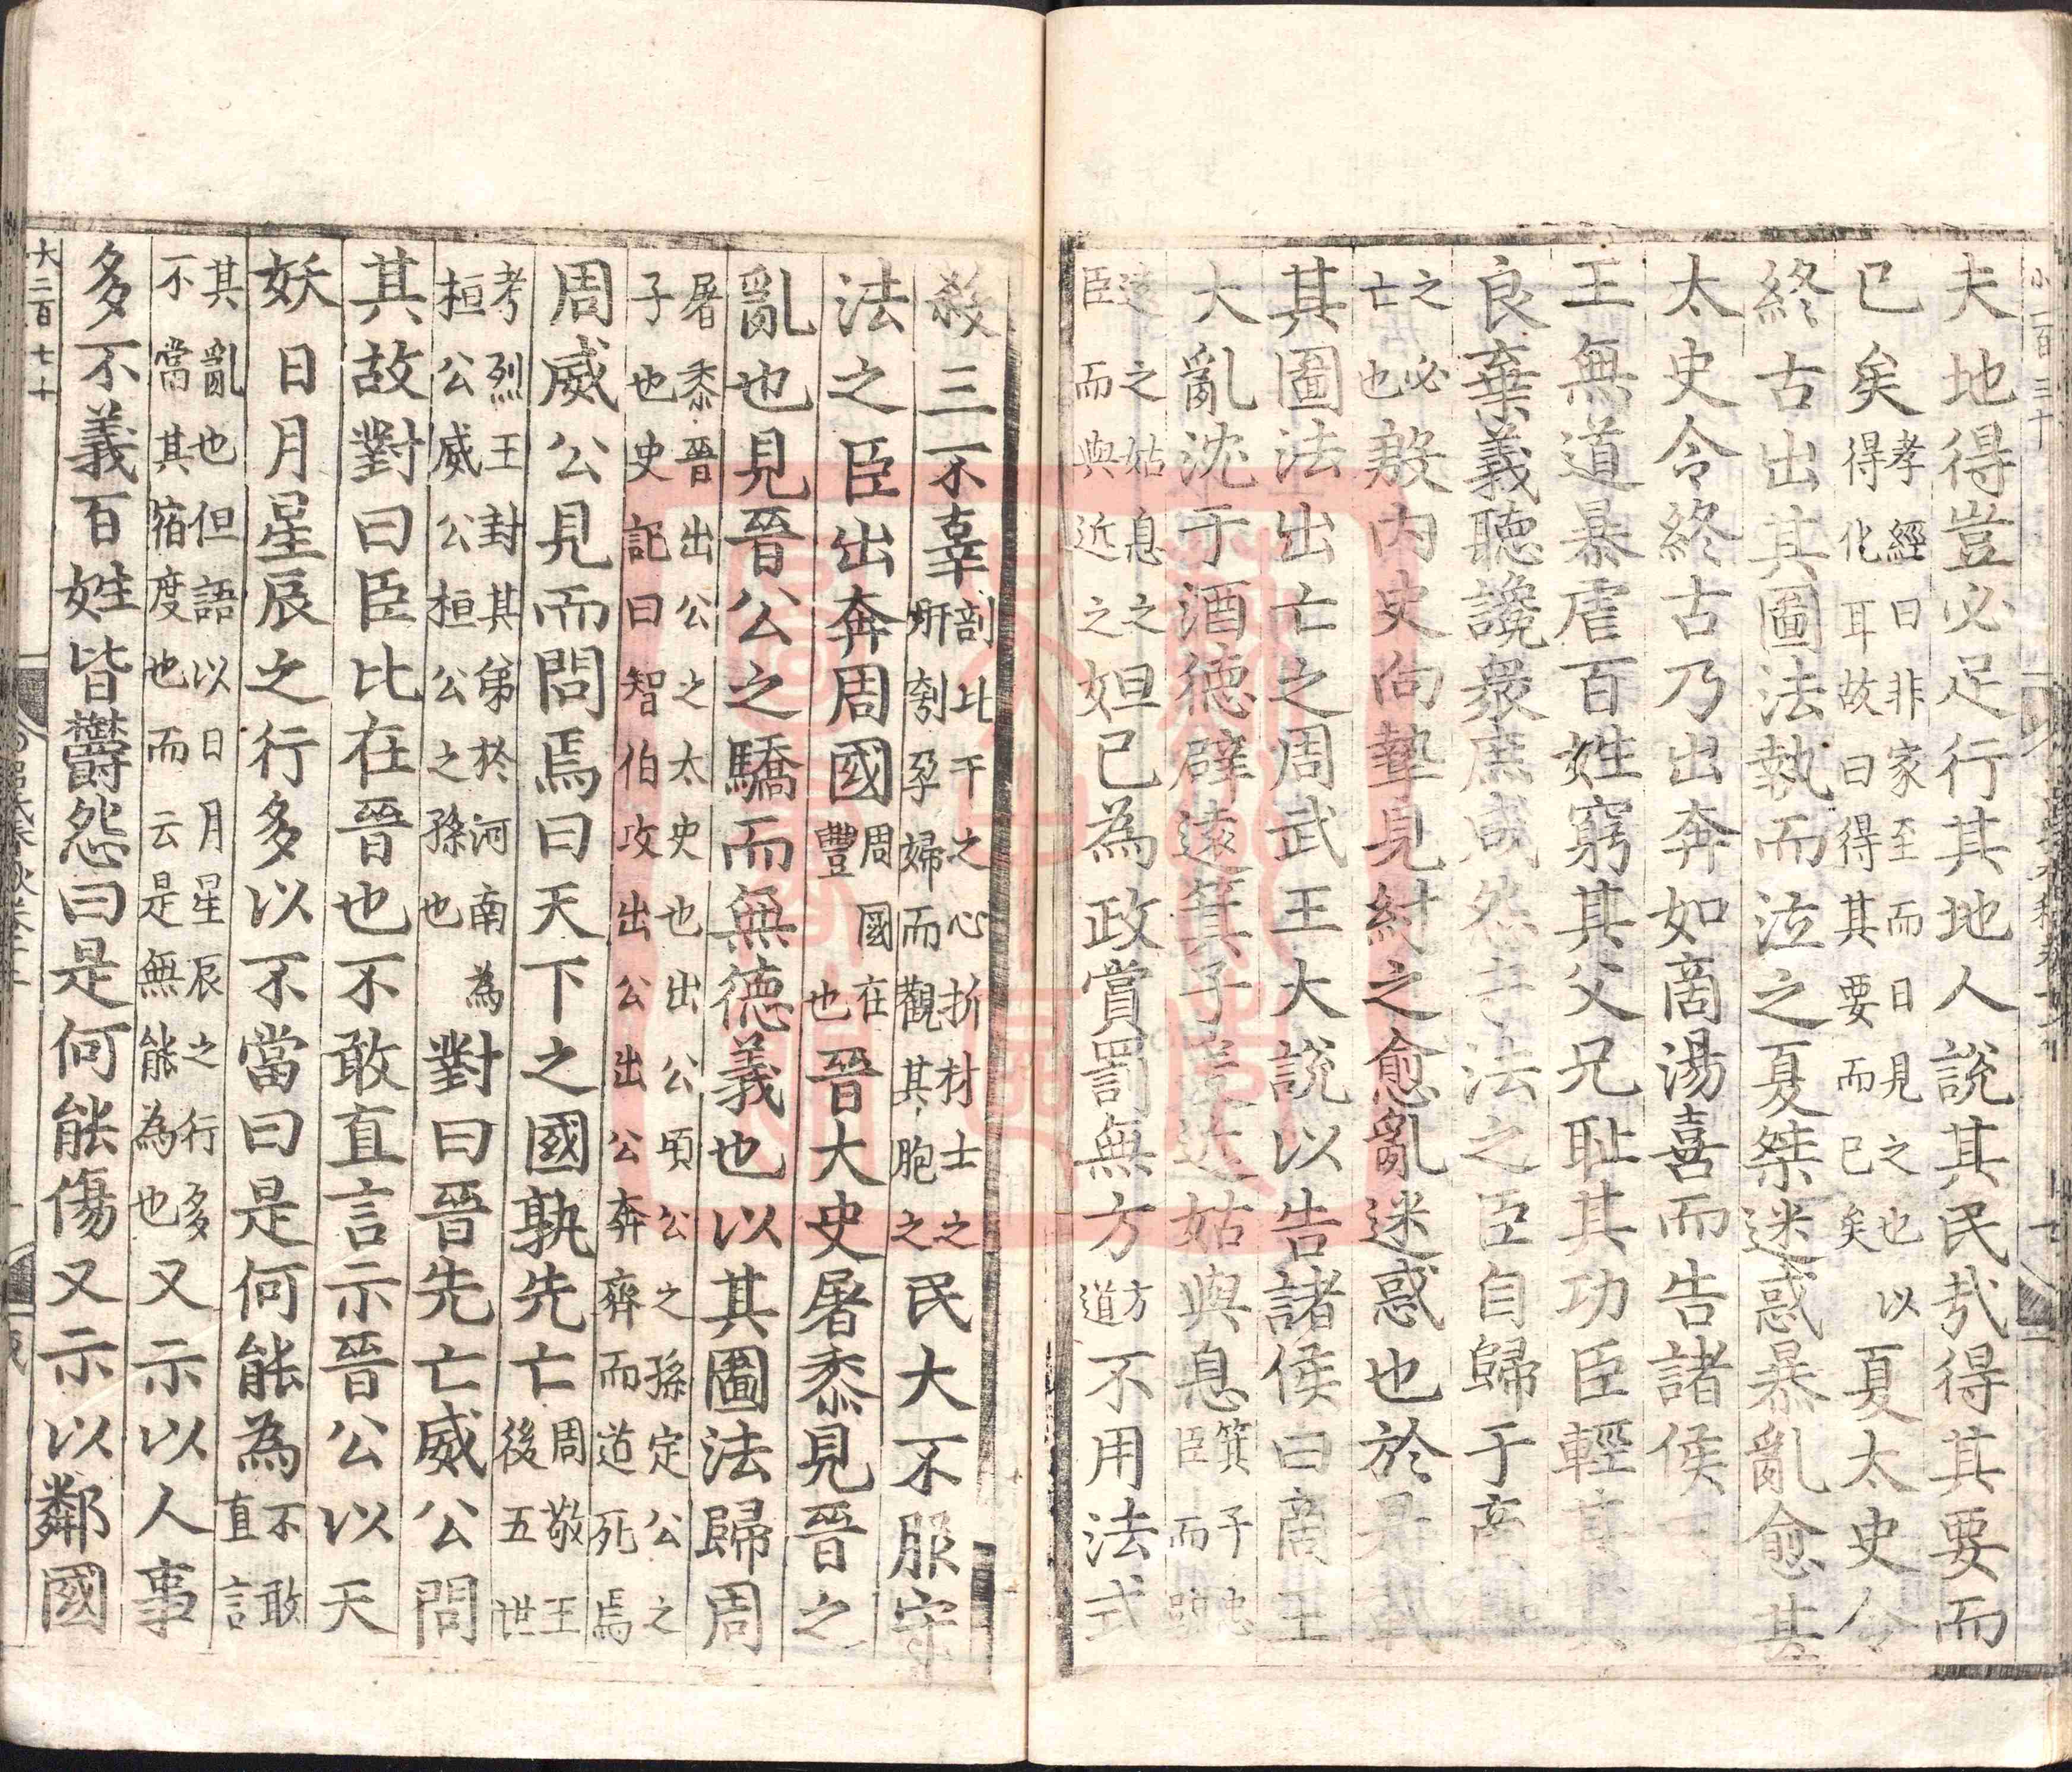 小二百三十
夫地得豈必足行其地人說其民㢤得其要而
已矣孝經曰非家至而日見之也以得化耳故曰得其要而已矣夏太史令
終古出其圖法執而泣之夏桀迷惑暴亂愈甚
太史令終古乃出奔如商湯喜而告諸侯
王無道暴虐百姓窮其父兄耻其功臣輕其
良棄義聽讒衆庶咸怨守法之臣自歸于商
殷內史向摯見紂之愈亂迷惑也於是載
之必亡也
其圖法出亡之周武王大說以告諸侯曰商王
大亂沈于酒德辟遠箕子爰近姑與息箕子忠臣而踈
遠之姑息之臣而與近之妲己為政賞罰無方方道不用法式
殺三不辜剖比干之心折材士之肵刳孕婦而觀其胞之民大不服守
法之臣出奔周國周國在豐也晉大史屠黍見晉之
亂也見晉公之驕而無德義也以其圖法歸周
屠黍晉出公之太史也出公頃公之孫定公之子也史記曰智伯攻出公出公奔齊而道死焉
周威公見而問焉曰天下之國孰先亡周敬王後五世
考烈王封其弟於河南為桓公威公桓公之孫也對曰晉先亡威公問
其故對曰臣比在晉也不敢直言示晉公以天
妖日月星辰之行多以不當曰是何能為不敢直言
其亂也但語以日月星辰之行多不當其宿度也而云是無能為也又示以人事
多不義百姓皆鬱怨曰是何能傷又示以鄰國
大二百七十